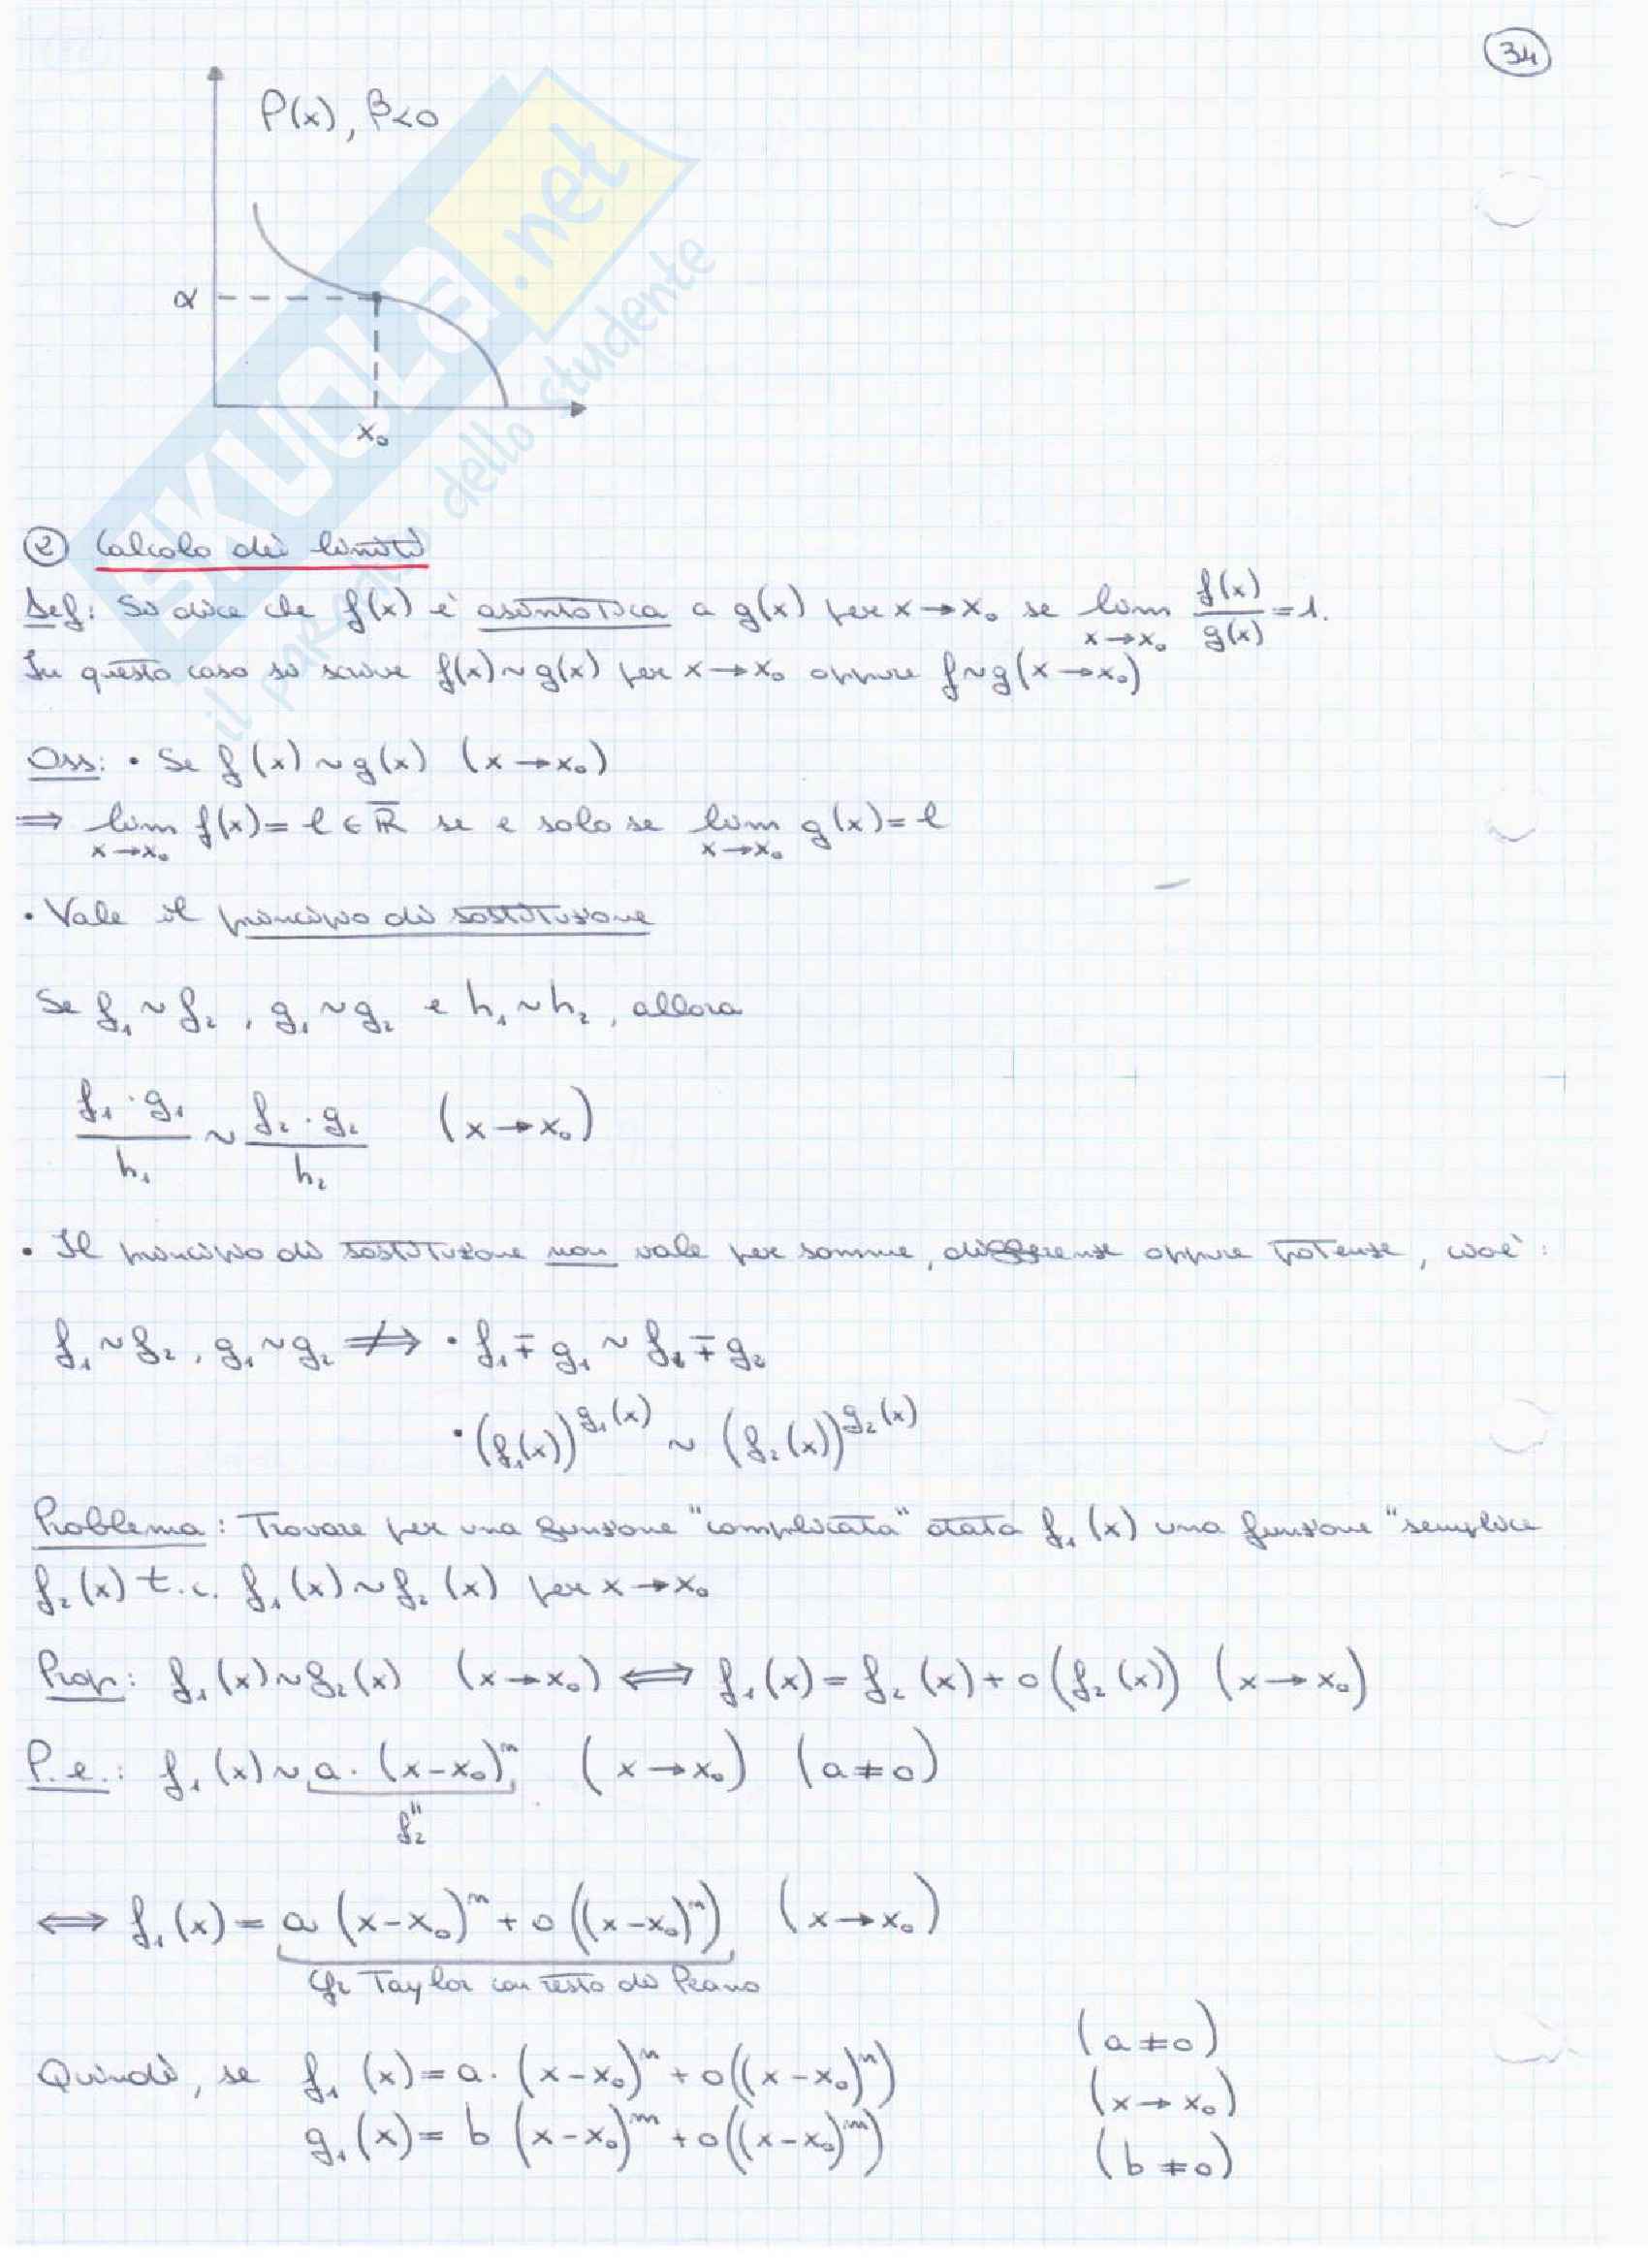 34
P(x), β<0
α
x₀
SKUOLA.net
il portale dello studente
② Calcolo dei limiti
Def: Si dice che f(x) è asintotica a g(x) per x→x₀ se lim x→x₀ f(x)/g(x) = 1.
In questo caso si scrive f(x)~g(x) per x→x₀ oppure f~g(x→x₀)
Oss: • Se f(x)~g(x) (x→x₀)
⇒ lim x→x₀ f(x)=l∈ℝ̅ se e solo se lim x→x₀ g(x)=l
• Vale il principio di sostituzione
Se f₁~f₂, g₁~g₂ e h₁~h₂, allora
f₁·g₁/h₁ ~ f₂·g₂/h₂ (x→x₀)
• Il principio di sostituzione non vale per somme, differenze oppure potenze, cioè:
f₁~f₂, g₁~g₂ ⇏ • f₁∓g₁ ~ f₂∓g₂
• (f₁(x))^g₁(x) ~ (f₂(x))^g₂(x)
Problema: Trovare per una funzione "complicata" data f₁(x) una funzione "semplice
f₂(x) t.c. f₁(x)~f₂(x) per x→x₀
Prop: f₁(x)~f₂(x) (x→x₀) ⟺ f₁(x)=f₂(x)+o(f₂(x)) (x→x₀)
P.e.: f₁(x)~a·(x-x₀)ⁿ (x→x₀) (a≠0)
"
f₂
⟺ f₁(x)=a(x-x₀)ⁿ+o((x-x₀)ⁿ) (x→x₀)
Taylor con resto di Peano
(a≠0)
Quindi, se f₁(x)=a·(x-x₀)ⁿ+o((x-x₀)ⁿ) (x→x₀)
g₁(x)=b(x-x₀)ᵐ+o((x-x₀)ᵐ) (b≠0)